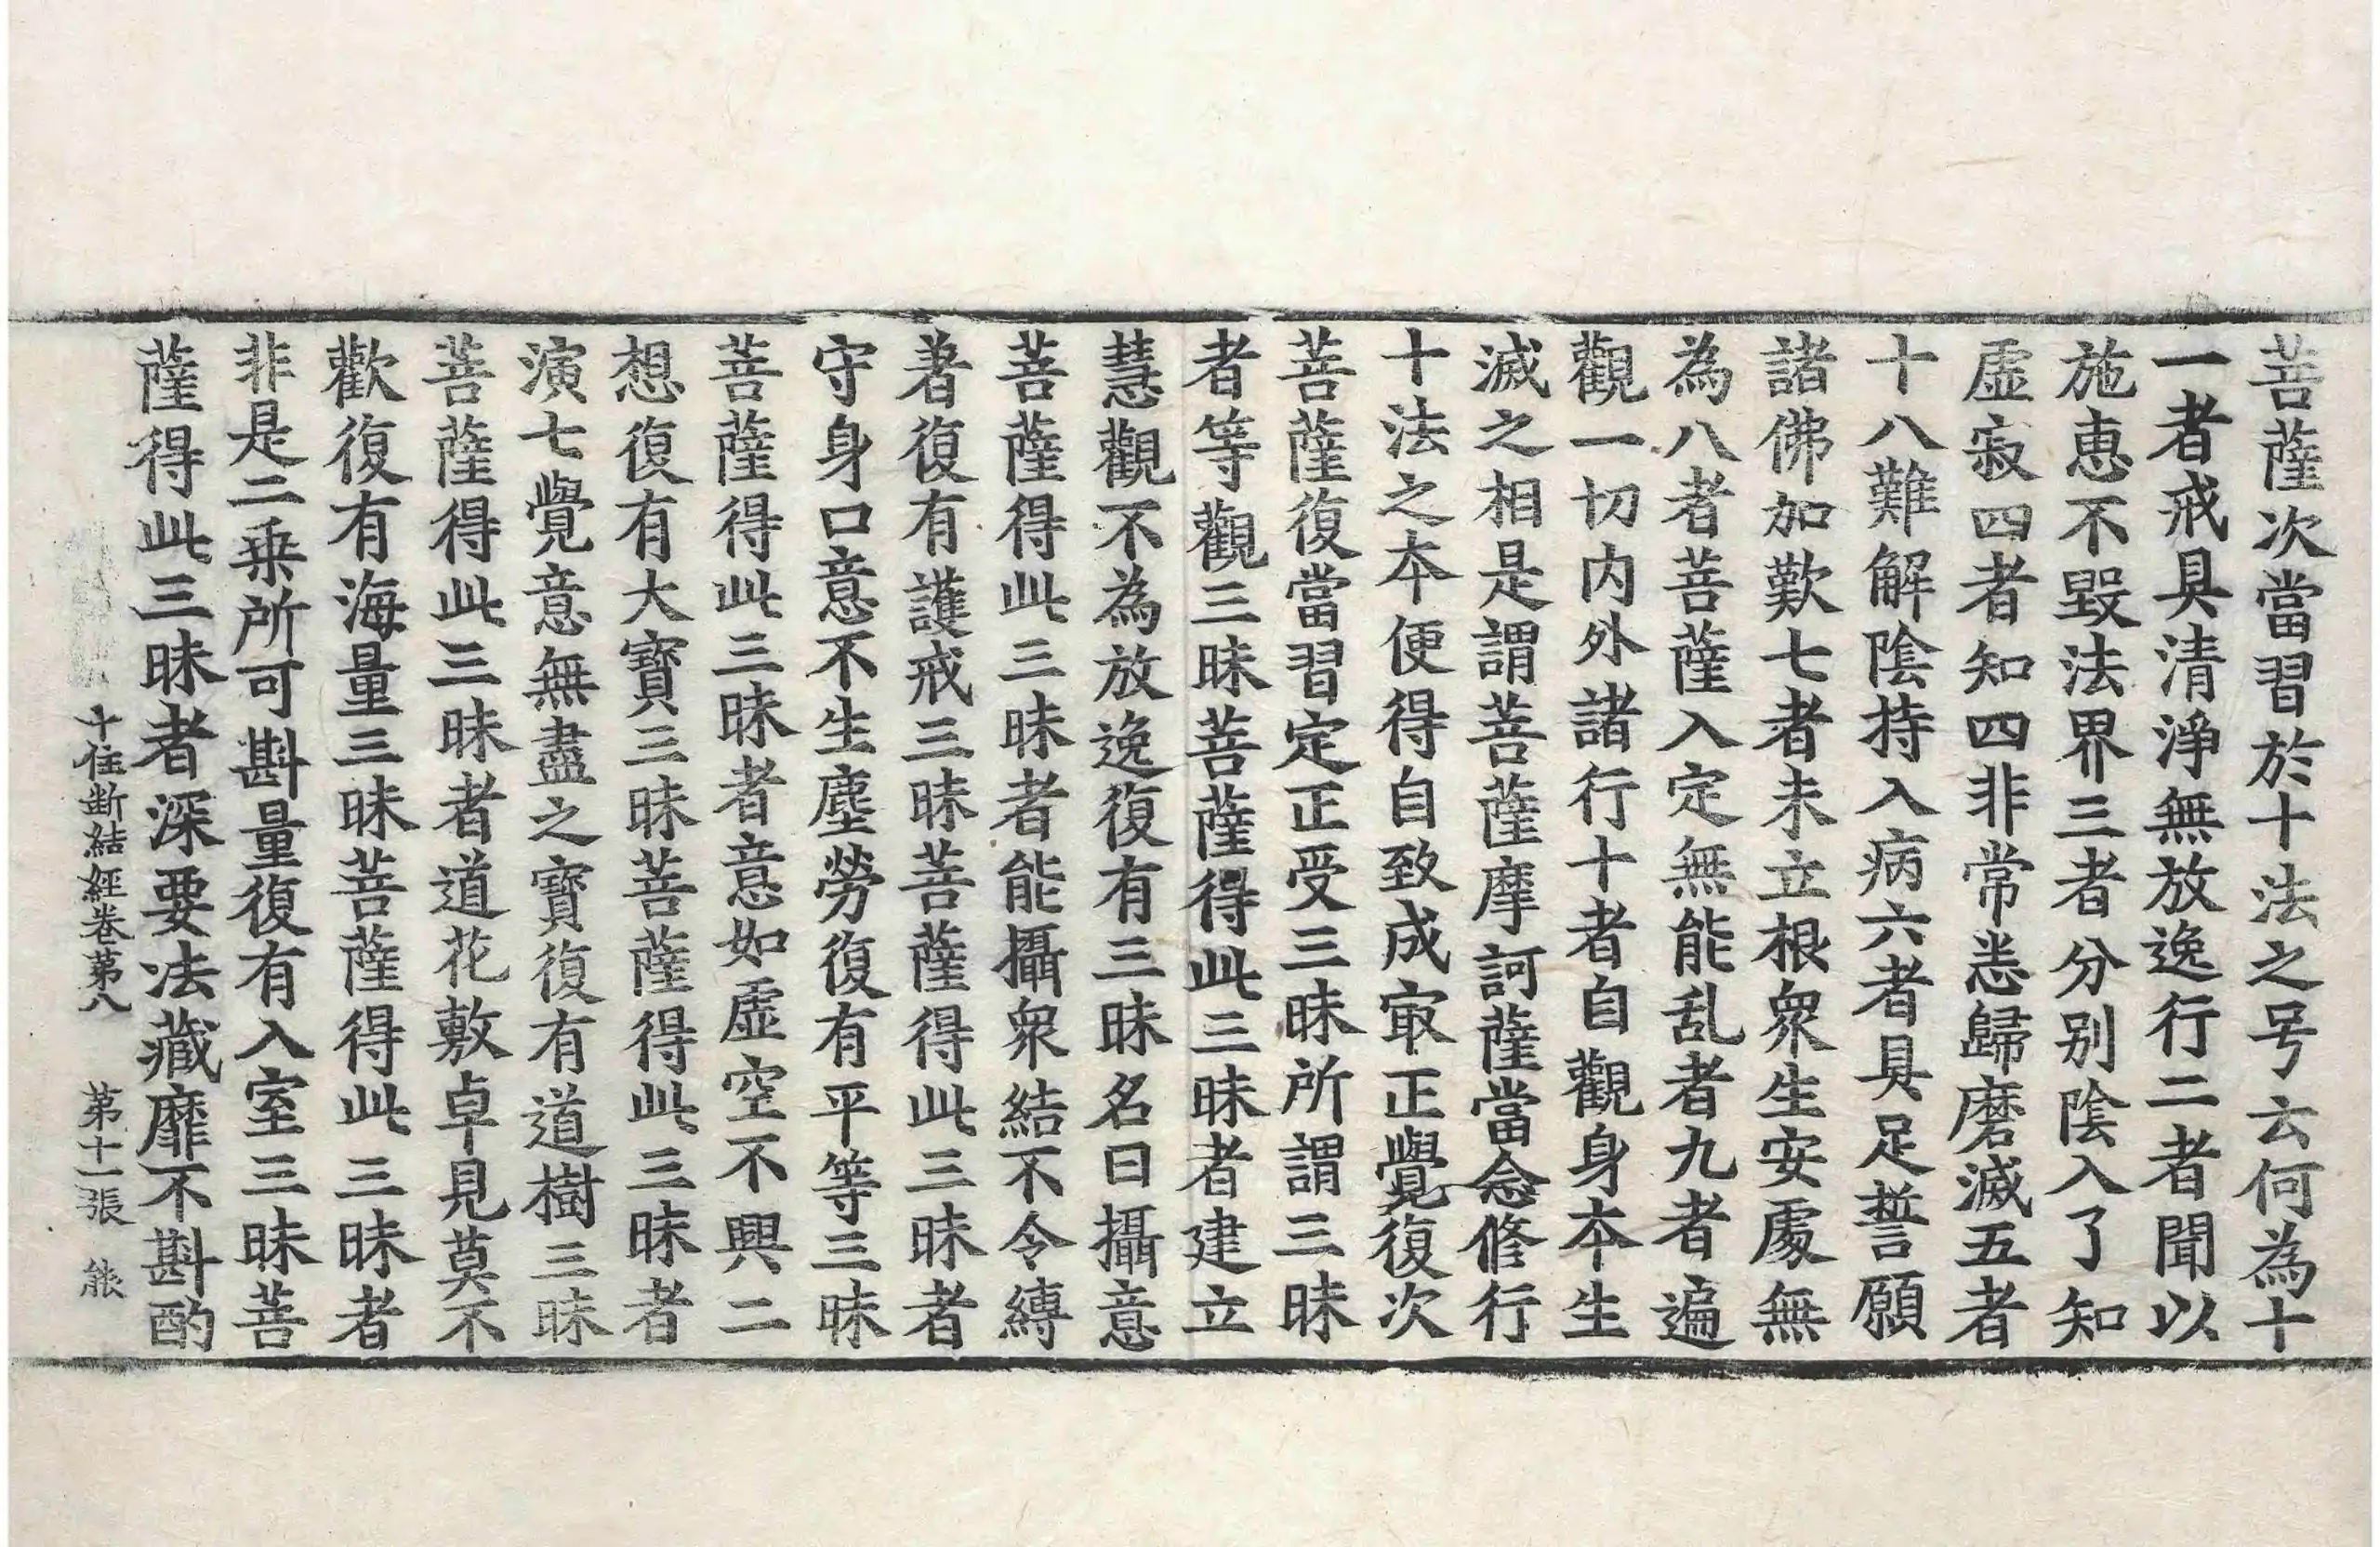 菩薩次當習於十法之号云何為十
一者戒具清淨無放逸行二者聞以
施惠不毀法界三者分别陰入了知
虛寂四者知四非常悉歸磨滅五者
十八難解陰持入病六者具足誓願
諸佛加歎七者未立根衆生安處無
為八者菩薩入定無能乱者九者遍
觀一切内外諸行十者自觀身夲生
滅之相是謂菩薩摩訶薩當念修行
十法之夲便得自致成㝡正覺復次
菩薩復當習定正受三昧所謂三昧
者等觀三昧菩薩得此三昧者建立
慧觀不為放逸復有三昧名曰攝意
菩薩得此三昧者能攝衆結不令縛
著復有護戒三昧菩薩得此三昧者
守身口意不生塵勞復有平等三昧
菩薩得此三昧者意如虛空不興二
想復有大寶三昧菩薩得此三昧者
演七覺意無盡之寶復有道樹三昧
菩薩得此三昧者道花敷卓見莫不
歡復有海量三昧菩薩得此三昧者
非是二乗所可斟量復有入室三昧菩
薩得此三昧者深要法藏靡不斟酌
十住斷結經卷苐八 苐十一張 熊